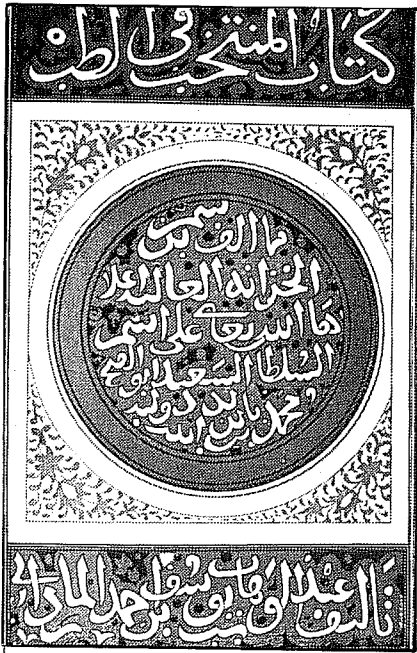 كتاب المنتخب فى الطب
ما الف برسم
الخزانة العالية اعلا
ها الله تعالى على اسم
السلطان السعيد ابو الفتح
محمد بن بايزيد ابد الله دولته
تاليف عبد الوهاب بن يوسف بن احمد الماردانى